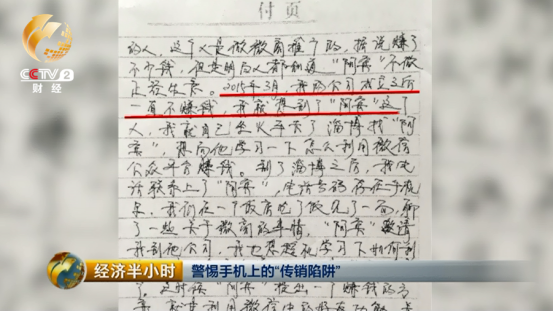 付页
的人,这个人是做微商推广的,据说赚了
不少钱,但是明白人都知道"阿宾"不做
正经生意。2015年3月,我的公司成立之后
一直不赚钱,我就想到了"阿宾"这个
人,我就自己坐火车去了淄博找"阿
宾",想向他学习一下怎么利用微信
公众平台赚钱。到了淄博之后,我电
话联系上了"阿宾",电话号码存在手机
里,我们在一个饭店吃了饭见了一面,聊
了一些关于微商的事情,"阿宾"邀请
我到他公司,我也想想他学习下如何
了。 "阿宾" 一个赚钱的
利用微信
CCTV 2
财经
经济半小时
警惕手机上的"传销陷阱"